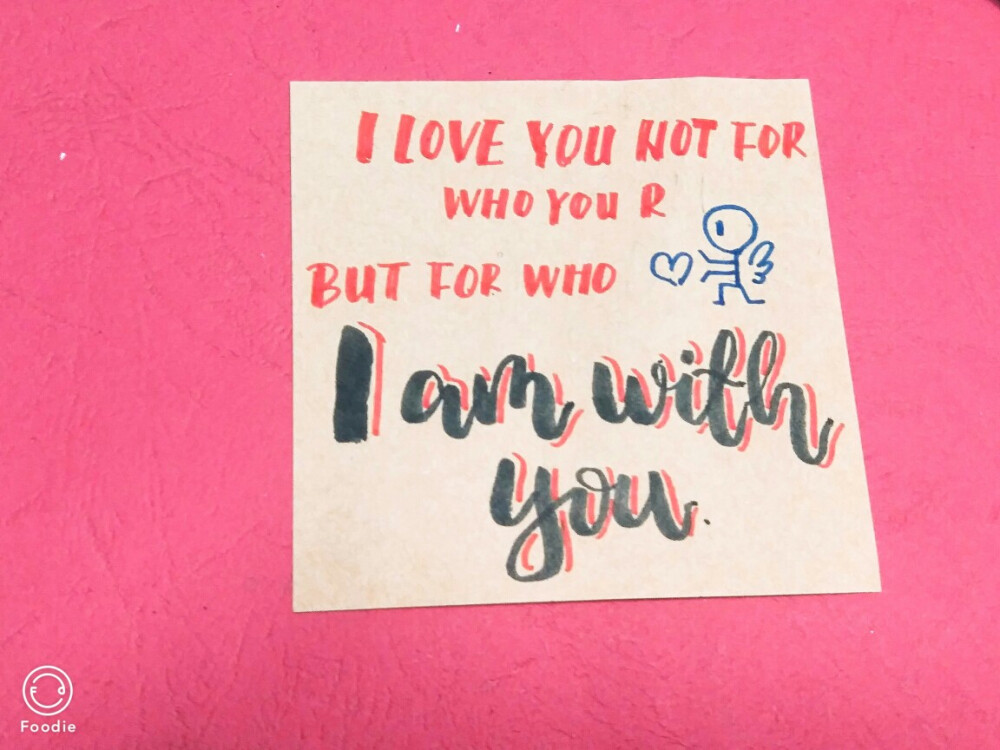 I LOVE YOU NOT FOR
WHO YOU R
BUT FOR WHO
I am with
you.
F d
Foodie